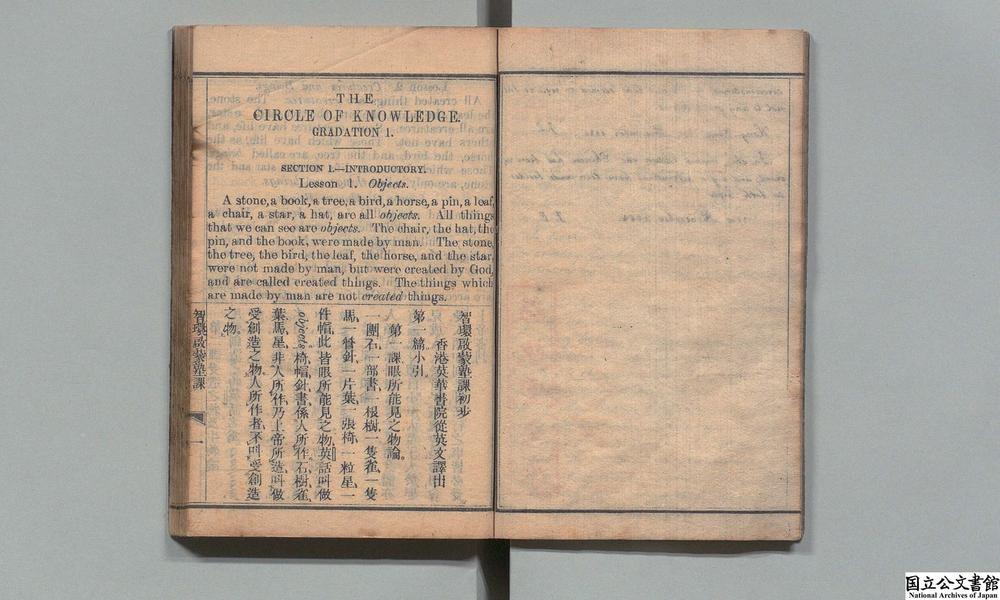 THE
CIRCLE OF KNOWLEDGE.
GRADATION 1.
SECTION 1.—INTRODUCTORY.
Lesson 1. Objects.
A stone, a book, a tree, a bird, a horse, a pin, a leaf,
a chair, a star, a hat, are all objects. All things
that we can see are objects. The chair, the hat, the
pin, and the book, were made by man. The stone,
the tree, the bird, the leaf, the horse, and the star,
were not made by man, but were created by God,
and are called created things. The things which
are made by man are not created things.
智環啟蒙塾課初步
香港英華書院從英文譯出
第一篇小引
第一課眼所能見之物論
一團石、一部書、一根樹、一隻雀、一隻
馬、一口針、一片葉、一張椅、一粒星、一
件帽、此皆眼所能見之物、英話叫做
objects、椅帽針書係人所作、石樹雀
葉馬星、非人所作、乃上帝所造、叫做
受創造之物、人所作者、不叫受創造
之物。
智環啟蒙塾課
一
国立公文書館
National Archives of Japan